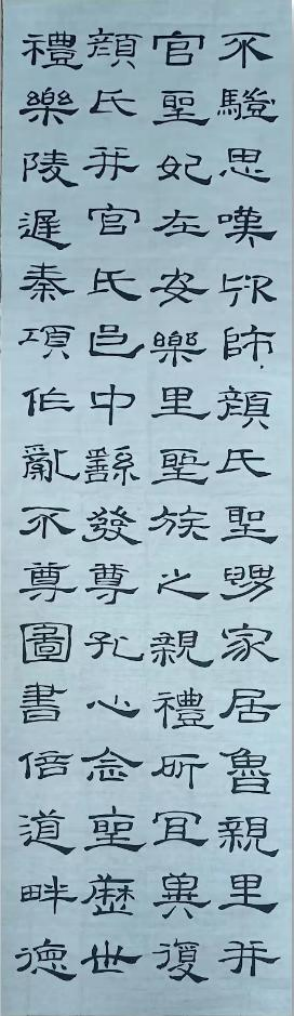 不驩思嘆卬師顏氏聖舅家居魯親里并
官聖妃在安樂里聖族之親禮所宜異復
顏氏并官氏邑中繇發尊孔心念聖歷世
禮樂陵遲秦項作亂不尊圖書倍道畔德